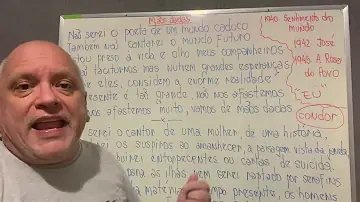 Mãos dadas
Não serei o poeta de um mundo caduco
Também não cantarei o mundo Futuro
Estou preso à vida e olho meus companheiros
taciturnos mas nutrem grandes esperanças
eles, considero a enorme realidade
presente é tão grande, não nos afastemos
nos afastemos muito, vamos de mãos dadas
serei o cantor de uma mulher, de uma história,
os suspiros ao amanhecer, a paisagem vista da janela
entorpecentes ou cartas de suicida,
para as ilhas nem serei raptado por serafins
matéria, tempo presente, os homens
1940. Sentimento do
mundo
1942 José
1945 A Rosa
do Povo
"EU"
condor